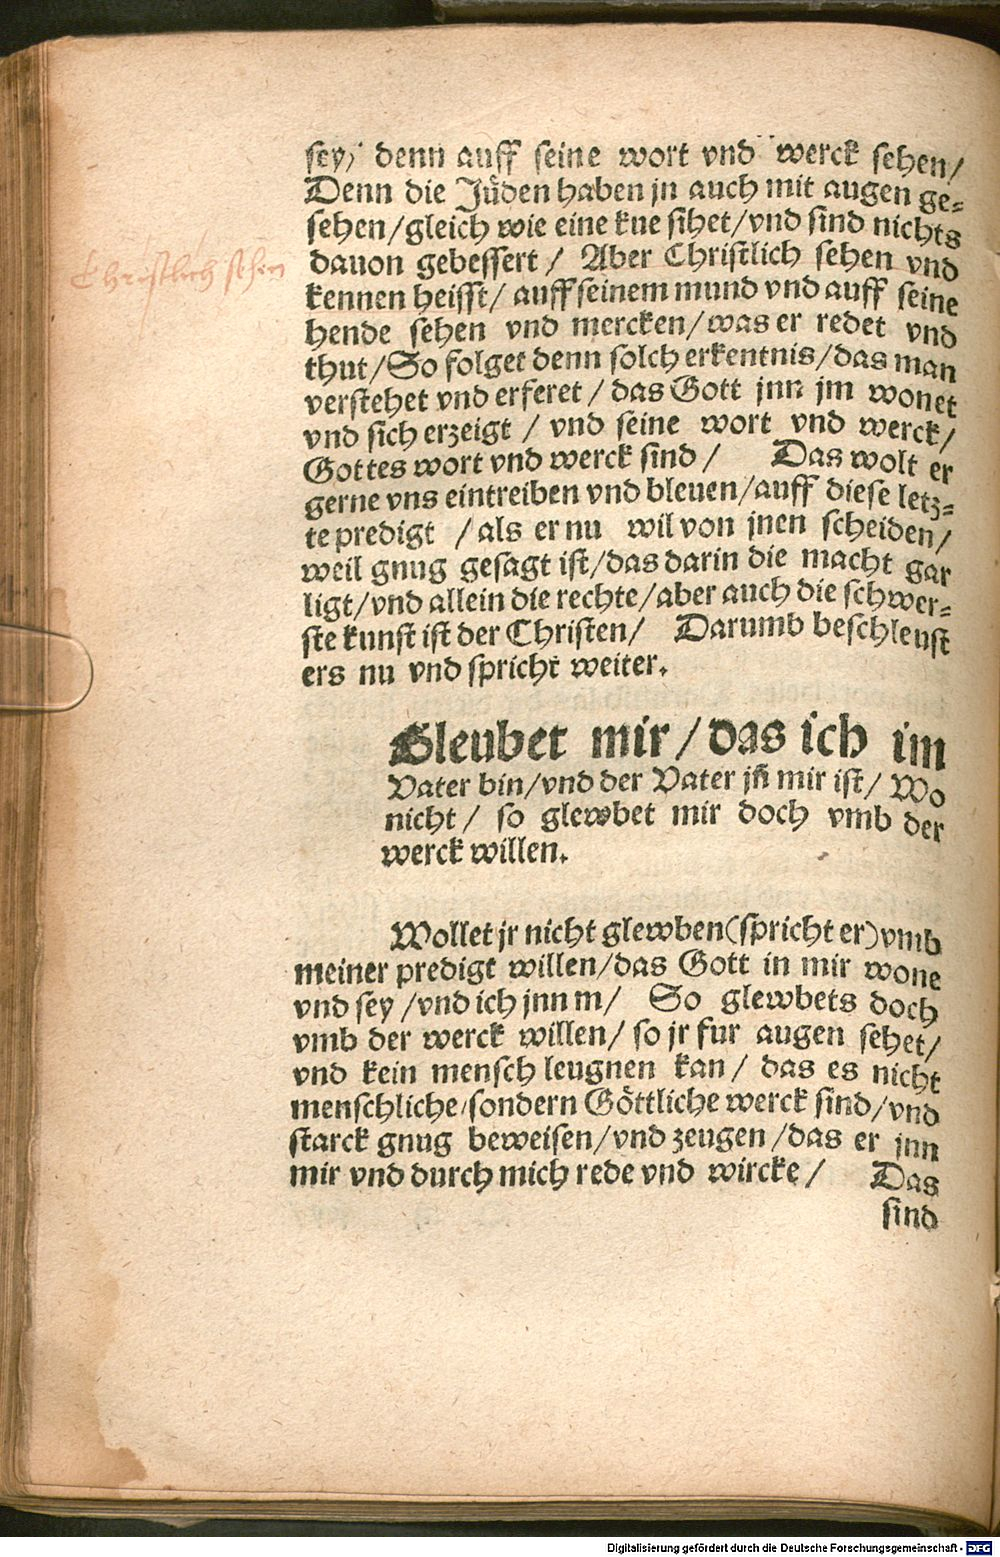 sey/ denn auff seine wort vnd werck sehen/
Denn die Jüden haben jn auch mit augen ge-
sehen/gleich wie eine kue sihet/vnd sind nichts
dauon gebessert / Aber Christlich sehen vnd
kennen heisst/ auff seinem mund vnd auff seine
hende sehen vnd mercken/was er redet vnd
thut/So folget denn solch erkentnis/das man
verstehet vnd erferet / das Gott jnn jm wonet
vnd sich erzeigt / vnd seine wort vnd werck/
Gottes wort vnd werck sind / Das wolt er
gerne vns eintreiben vnd bleuen/auff diese letz-
te predigt / als er nu wil von jnen scheiden/
weil gnug gesagt ist/das darin die macht gar
ligt/vnd allein die rechte/aber auch die schwer-
ste kunst ist der Christen/ Darumb beschleust
ers nu vnd spricht weiter.
Christlich sehen
Gleubet mir/das ich im
Vater bin/vnd der Vater jn̄ mir ist/ Wo
nicht/ so glewbet mir doch vmb der
werck willen.
Wollet jr nicht glewben(spricht er)vmb
meiner predigt willen/das Gott in mir wone
vnd sey /vnd ich jnn m/ So glewbets doch
vmb der werck willen/ so jr fur augen sehet/
vnd kein mensch leugnen kan/ das es nicht
menschliche/sondern Göttliche werck sind/vnd
starck gnug beweisen/vnd zeugen /das er jnn
mir vnd durch mich rede vnd wircke/ Das
sind
Digitalisierung gefördert durch die Deutsche Forschungsgemeinschaft - DFG